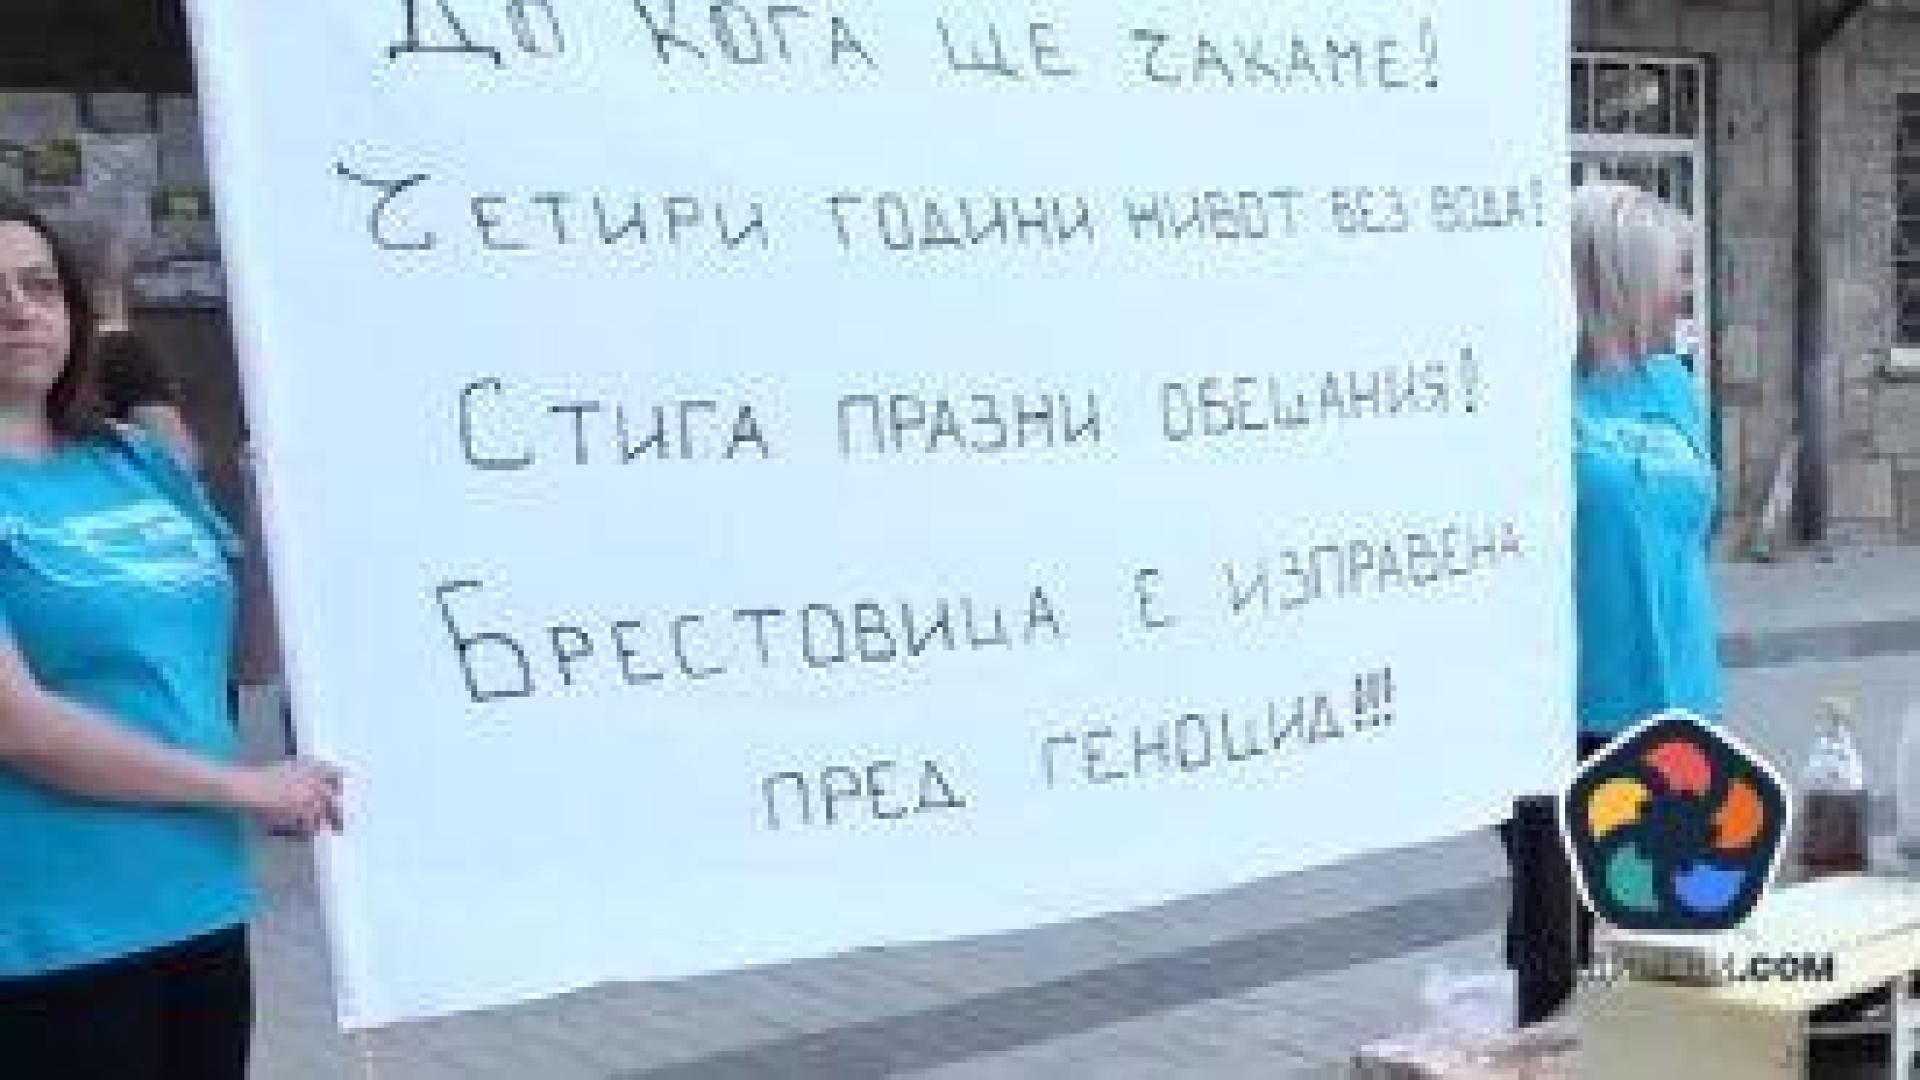 До кога ще чакаме!
Четири години живот без вода!
Стига празни обещания!
Брестовица е изправена
пред геноцид!!!
.COM